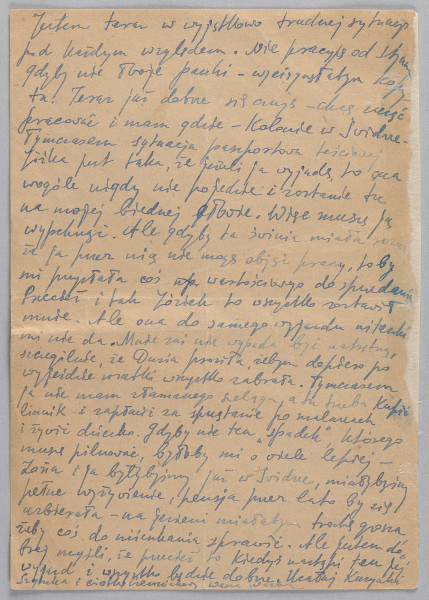 Jestem teraz w wyjątkowo trudnej sytuacji
pod każdym względem. Nie pracuję od
gdyby nie Twoje paczki – wyciągnęłabym kopy-
ta! Teraz już dobrze się czuję – chcę
pracować i mam gdzie – Kolonie w Świdrze.
Tymczasem sytuacja paszportowa teściowej
Józka jest taka, że jeśli ja wyjadę, to ona
wogóle nigdy nie pojedzie i zostanie tu
na mojej biednej głowie. Więc muszę ją
wypchnąć. Ale gdyby ta świnia miała rozum
że ja przez nią nie mogę objąć pracy, to by
mi przysłała coś wartościowego do sprzedania
Przecież i tak Józek to wszystko zostawił
mnie. Ale ona do samego wyjazdu ni czhi
mi nie da. Mnie zaś nie wypada być natrętną,
szczególnie, że Dusia prosiła, żebym dopiero po
wyjeździe wszystko zabrała. Tymczasem
ja nie mam złamanego szeląga, a tu trzeba kupić
i zapłacić za sprzątanie po malarzach
i żywić dziecko. Gdyby nie ten „spadek" którego
muszę pilnować, byłoby mi o wiele lepiej –
Zosia i ja byłybyśmy już w Świdrze, miałybyśmy
pełne wyżywienie, pensja przez lato by się
uzbierała – na jesieni miałabym trochę grosza
żeby coś do mieszkania sprawić. Ale jestem do-
brej myśli, że przecież to kiedyś nastąpi ten jej
wyjazd i wszystko będzie dobrze. Ucałuj